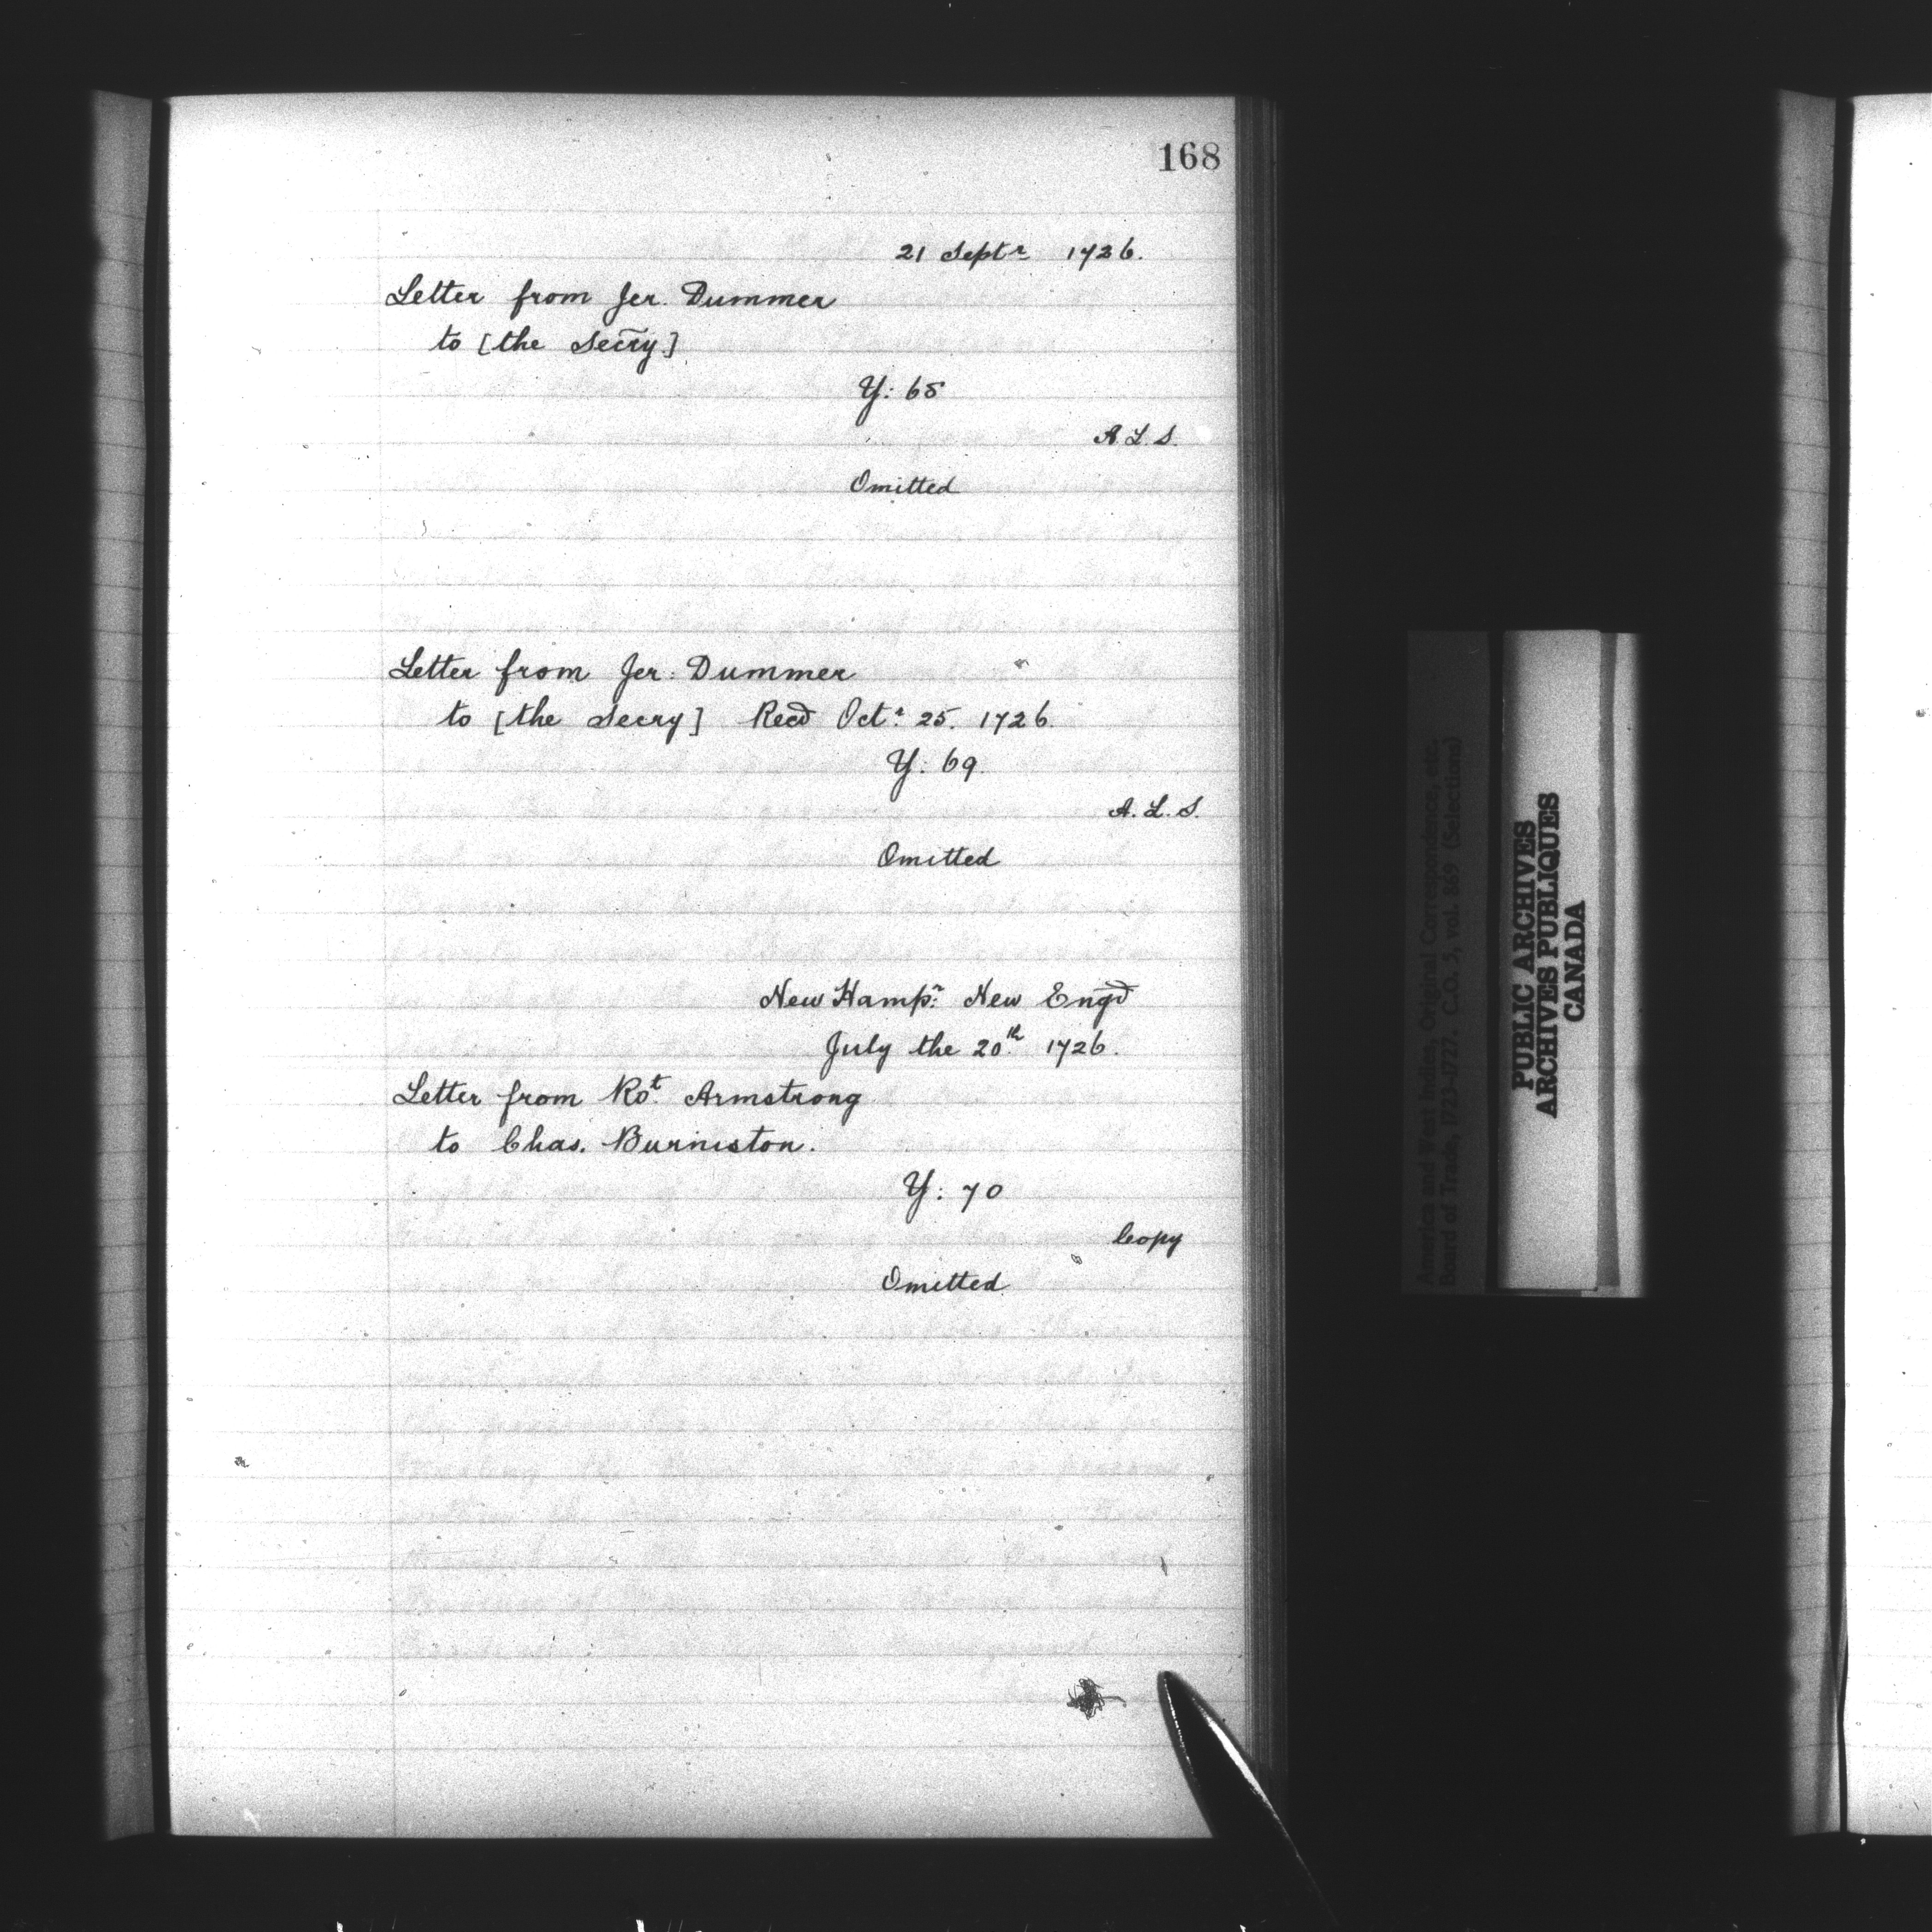 168
21 Septr 1726.
Letter from Jer. Dummer
to [the Secry]
Y: 65
A. L. S.
Omitted
Letter from Jer: Dummer
to [the Secry] Recd Octr 25. 1726.
Y: 69.
A. L. S.
Omitted
New Hampr: New Engd
July the 20th 1726.
Letter from Rot Armstrong
to Chas. Burniston.
Y: 70
Copy
Omitted
America and West Indies, Original Correspondence, etc.
Board of Trade, 1723-1727. C.O. 5, vol. 869 (Selections)
PUBLIC ARCHIVES
ARCHIVES PUBLIQUES
CANADA